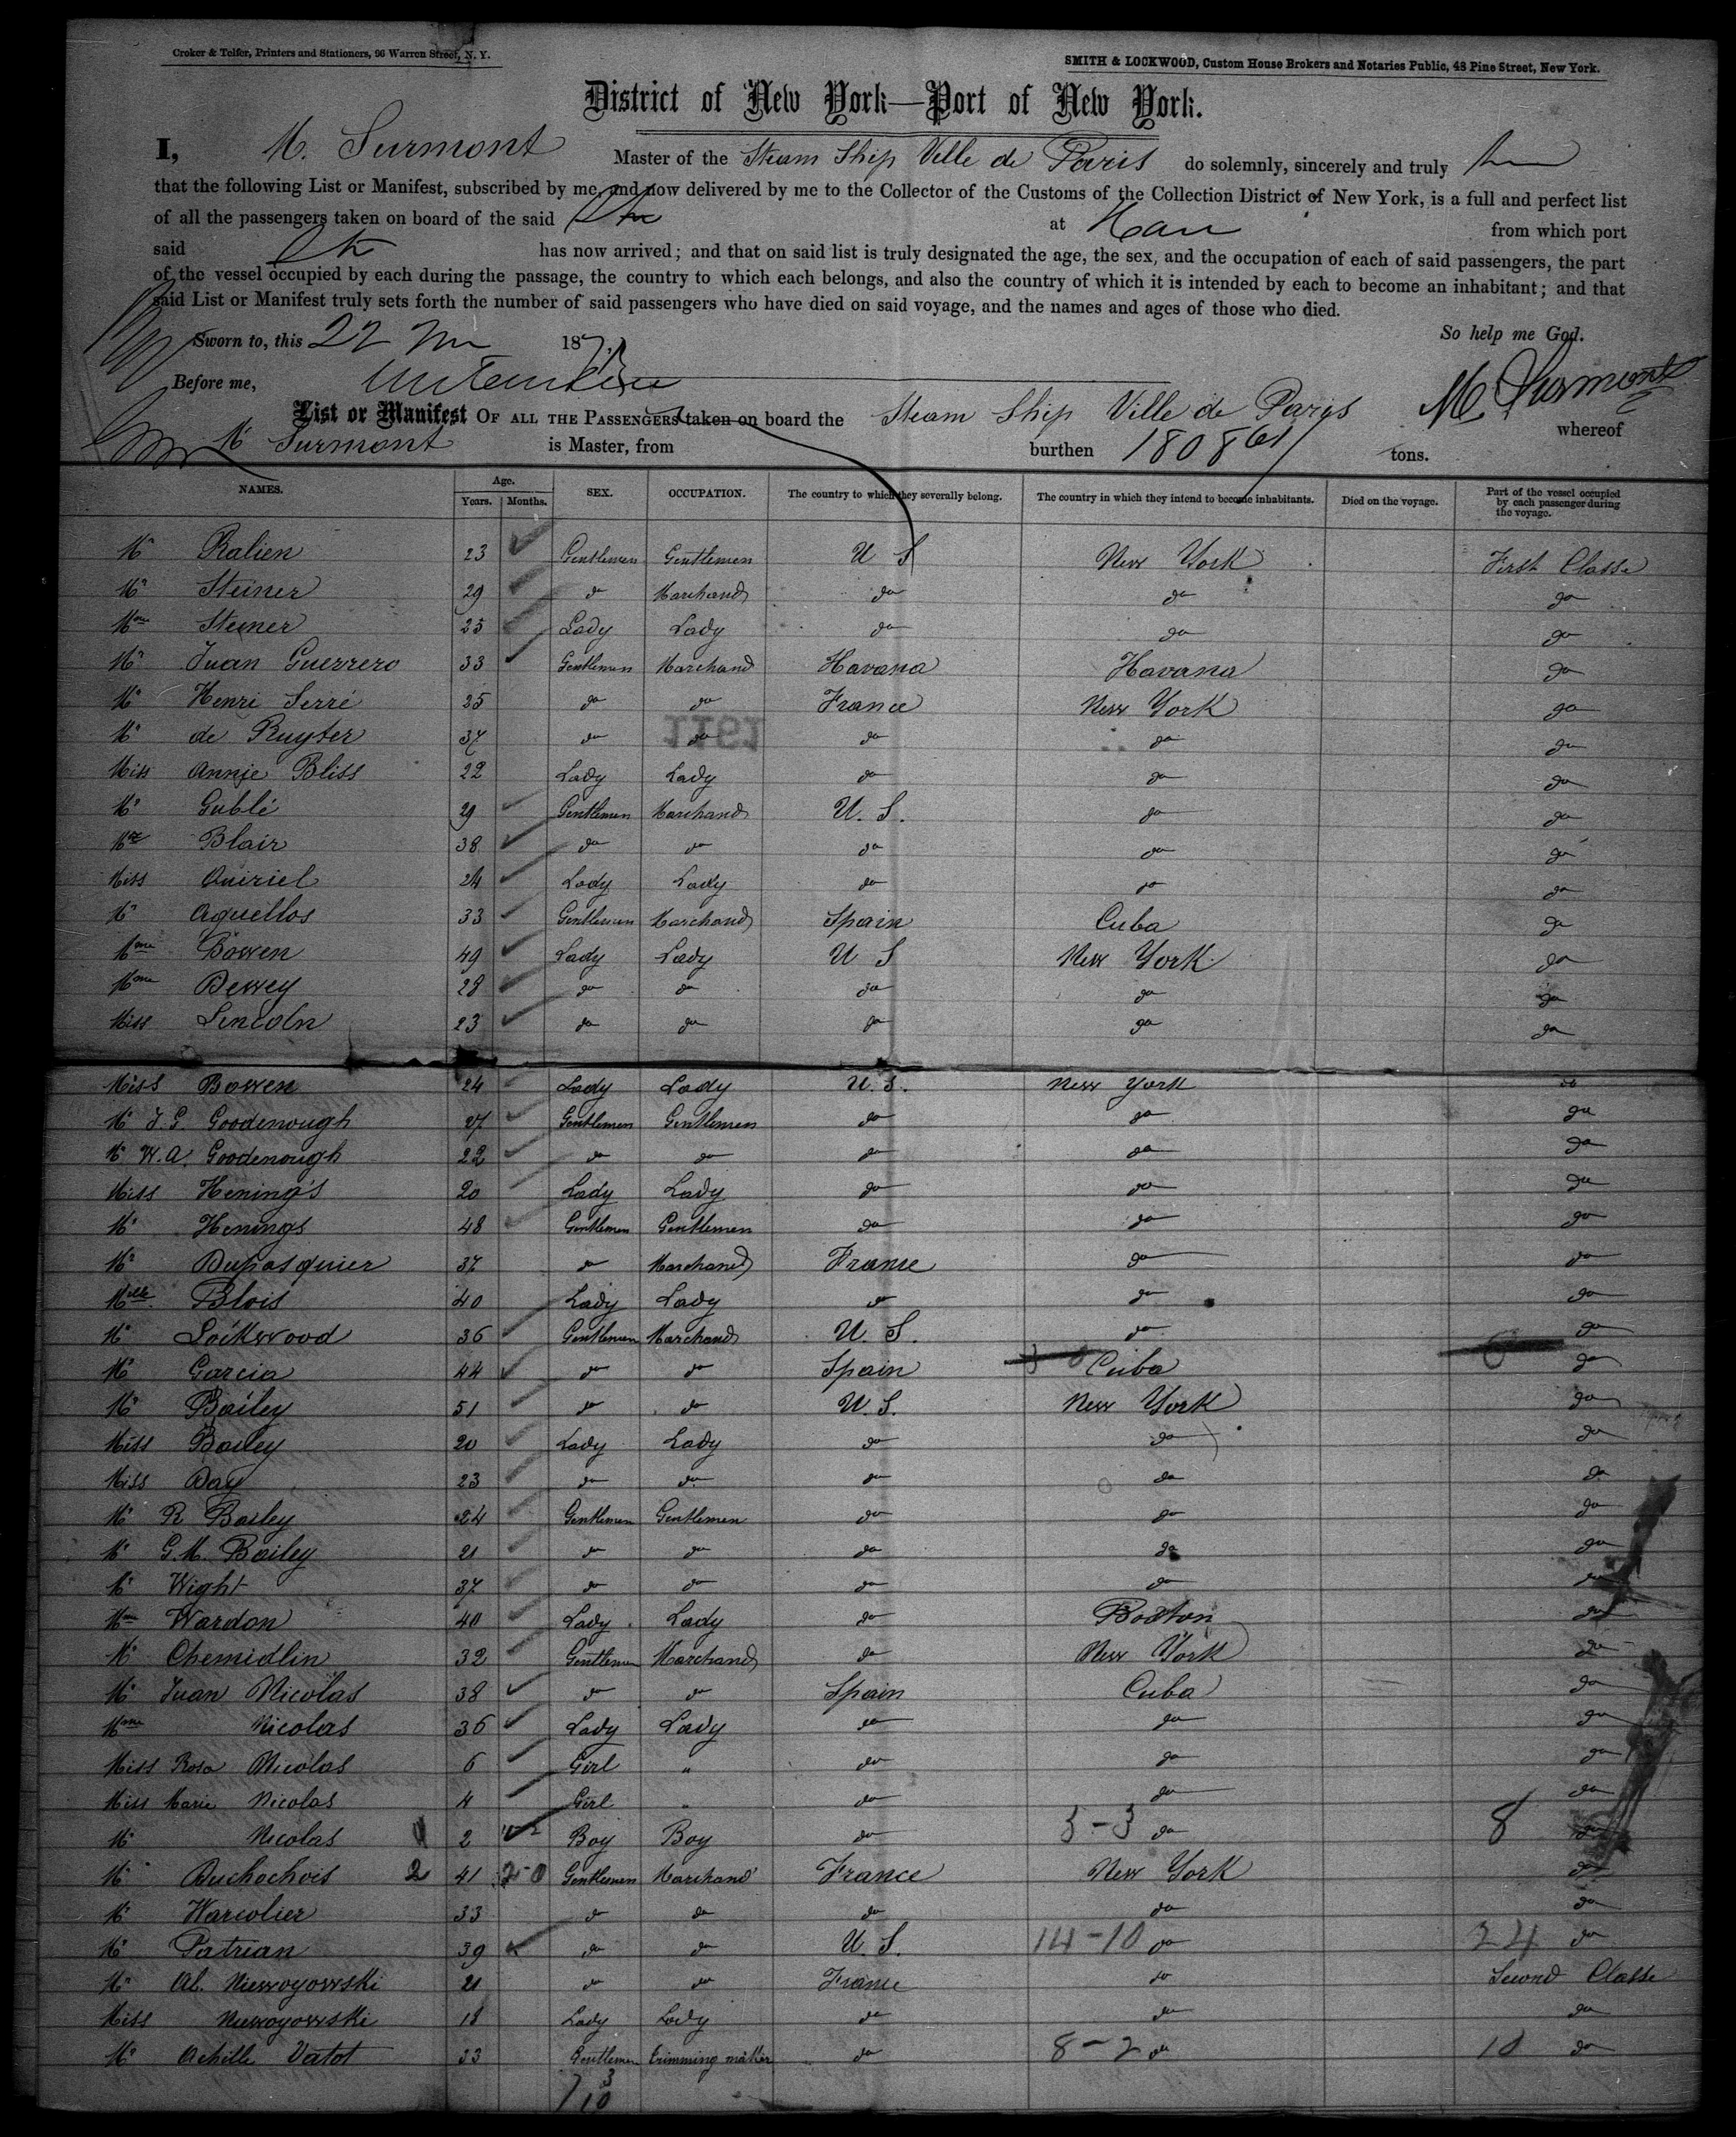 Croker & Telfer, Printers and Stationers, 96 Warren Street, N. Y.
SMITH & LOCKWOOD, Custom House Brokers and Notaries Public, 48 Pine Street, New York.
District of New York—Port of New York.
I, M. Surmont Master of the Steam Ship Ville de Paris do solemnly, sincerely and truly
that the following List or Manifest, subscribed by me, and now delivered by me to the Collector of the Customs of the Collection District of New York, is a full and perfect list
of all the passengers taken on board of the said at from which port
said has now arrived; and that on said list is truly designated the age, the sex, and the occupation of each of said passengers, the part
of the vessel occupied by each during the passage, the country to which each belongs, and also the country of which it is intended by each to become an inhabitant; and that
said List or Manifest truly sets forth the number of said passengers who have died on said voyage, and the names and ages of those who died.
Sworn to, this 22 187 So help me God.
Before me, M Surmont
List or Manifest OF ALL THE PASSENGERS taken on board the Steam Ship Ville de Paris whereof
M Surmont is Master, from burthen 1808 61/ tons.
NAMES. Age. Years. Months. SEX. OCCUPATION. The country to which they severally belong. The country in which they intend to become inhabitants. Died on the voyage. Part of the vessel occupied by each passenger during the voyage.
Mr Ralien 23 Gentlemen Gentlemen U S New York First Classe
Mr Steiner 29 do Marchand do do do
Mme Steiner 25 Lady Lady do do do
Mr Juan Guerrero 33 Gentlemen Marchand Havana Havana do
Mr Henri Serré 25 do do France New York do
Mr de Ruyter 37 do do do do do
Miss Annie Bliss 22 Lady Lady do do do
Mr Gublé 29 Gentlemen Marchand U. S. do do
Mr Blair 38 do do do do do
Miss Quiriel 24 Lady Lady do do do
Mr Aquellos 33 Gentlemen Marchand Spain Cuba do
Mme Bowen 49 Lady Lady U S New York do
Mme Dewey 28 do do do do do
Miss Lincoln 23 do do do do do
Miss Bowen 24 Lady Lady U. S. New York do
Mr J. G. Goodenough 27 Gentlemen Gentlemen do do do
Mr W. A. Goodenough 22 do do do do do
Miss Hening's 20 Lady Lady do do do
Mr Henings 48 Gentlemen Gentlemen do do do
Mr Dupasquier 37 do Marchand France do do
Melle Blois 40 Lady Lady do do do
Mr Lockwood 36 Gentlemen Marchand U. S. do do
Mr Garcia 44 do do Spain Cuba do
Mr Bailey 51 do do U. S. New York do
Miss Bailey 20 Lady Lady do do do
Miss Day 23 do do do do do
Mr R Bailey 24 Gentlemen Gentlemen do do do
Mr G. M. Bailey 21 do do do do do
Mr Wight 37 do do do do do
Mme Wardon 40 Lady Lady do Boston do
Mr Chemidlin 32 Gentlemen Marchand do New York do
Mr Juan Nicolas 38 do do Spain Cuba do
Mme Nicolas 36 Lady Lady do do do
Miss Rosa Nicolas 6 Girl " do do do
Miss Marie Nicolas 4 Girl " do do do
Mr Nicolas 2 Boy Boy do 3-3 do 8 do
Mr Duchochois 2 41 2-0 Gentlemen Marchand France New York do
Mr Warcolier 33 do do do do do
Mr Patrian 39 do do U S. 14-10 do 24 do
Mr Al. Niewoyowski 21 do do France do Second Classe
Miss Niewoyowski 18 Lady Lady do do do
Mr Achille Vatot 33 Gentlemen trimming maker do 8-2 do 10 do
7 3
10